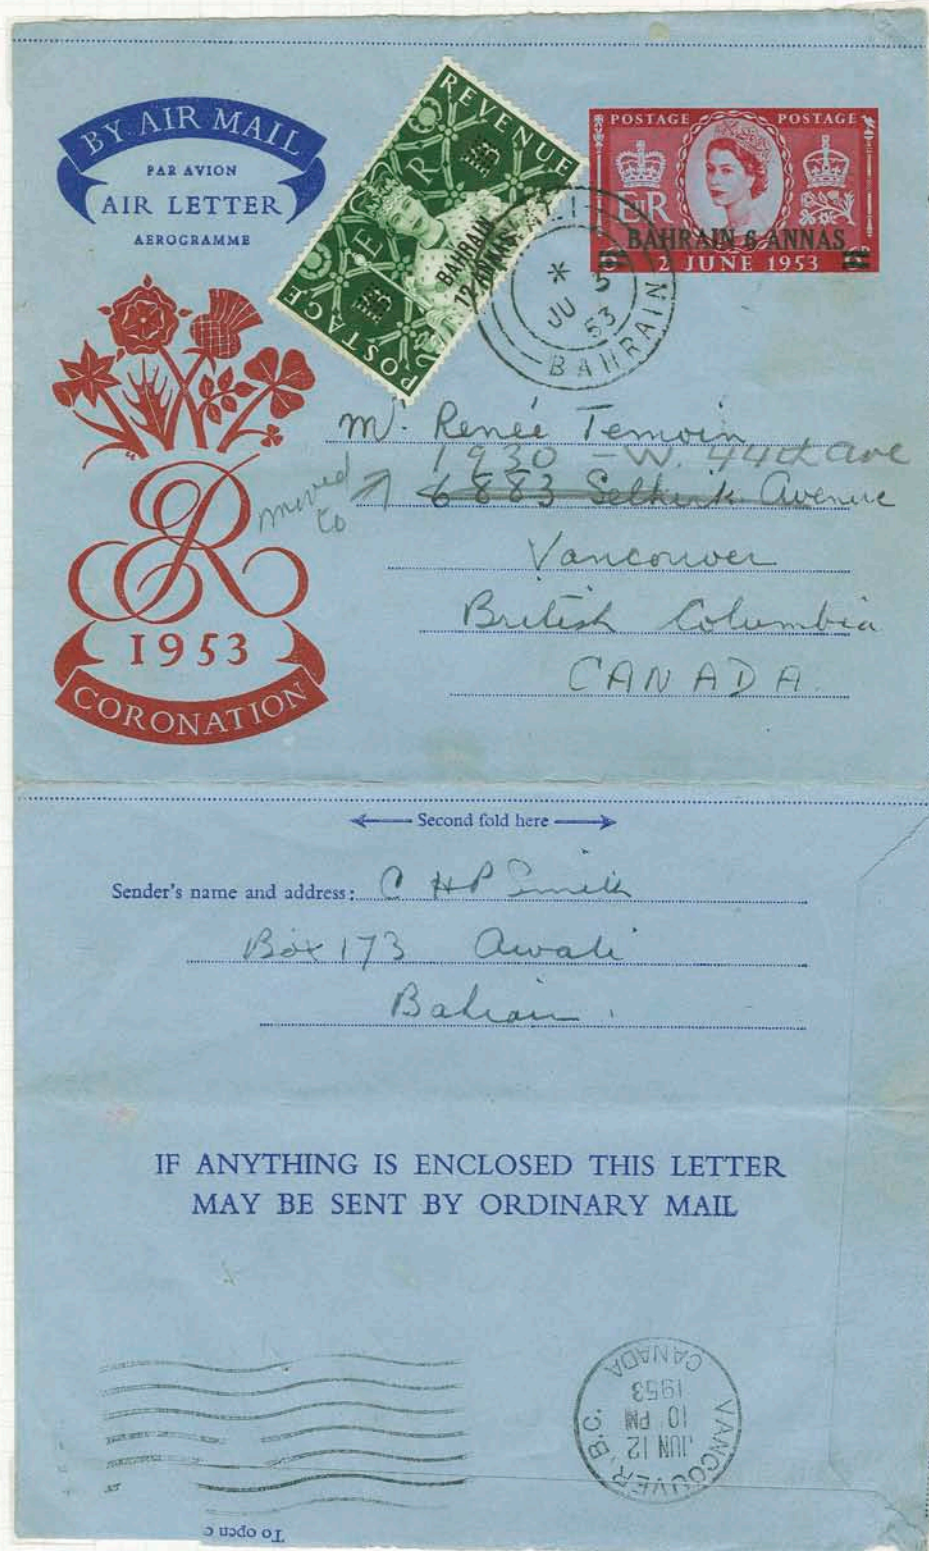 BY AIR MAIL
PAR AVION
AIR LETTER
AEROGRAMME
POSTAGE REVENUE
E R
BAHRAIN
12 ANNAS
POSTAGE POSTAGE
E II R
BAHRAIN 6 ANNAS
2 JUNE 1953
* 5
JU
53
BAHRAIN
Mr. Renée Temoin
1930 - W. 44th ave
moved to
6883 Selkirk Avenue
Vancouver
British Columbia
CANADA.
ER
1953
CORONATION
Second fold here
Sender's name and address: C H P Smith
Box 173 Awali
Bahrain.
IF ANYTHING IS ENCLOSED THIS LETTER
MAY BE SENT BY ORDINARY MAIL
VANCOUVER, B.C.
JUN 12
10 PM
1953
CANADA
To open